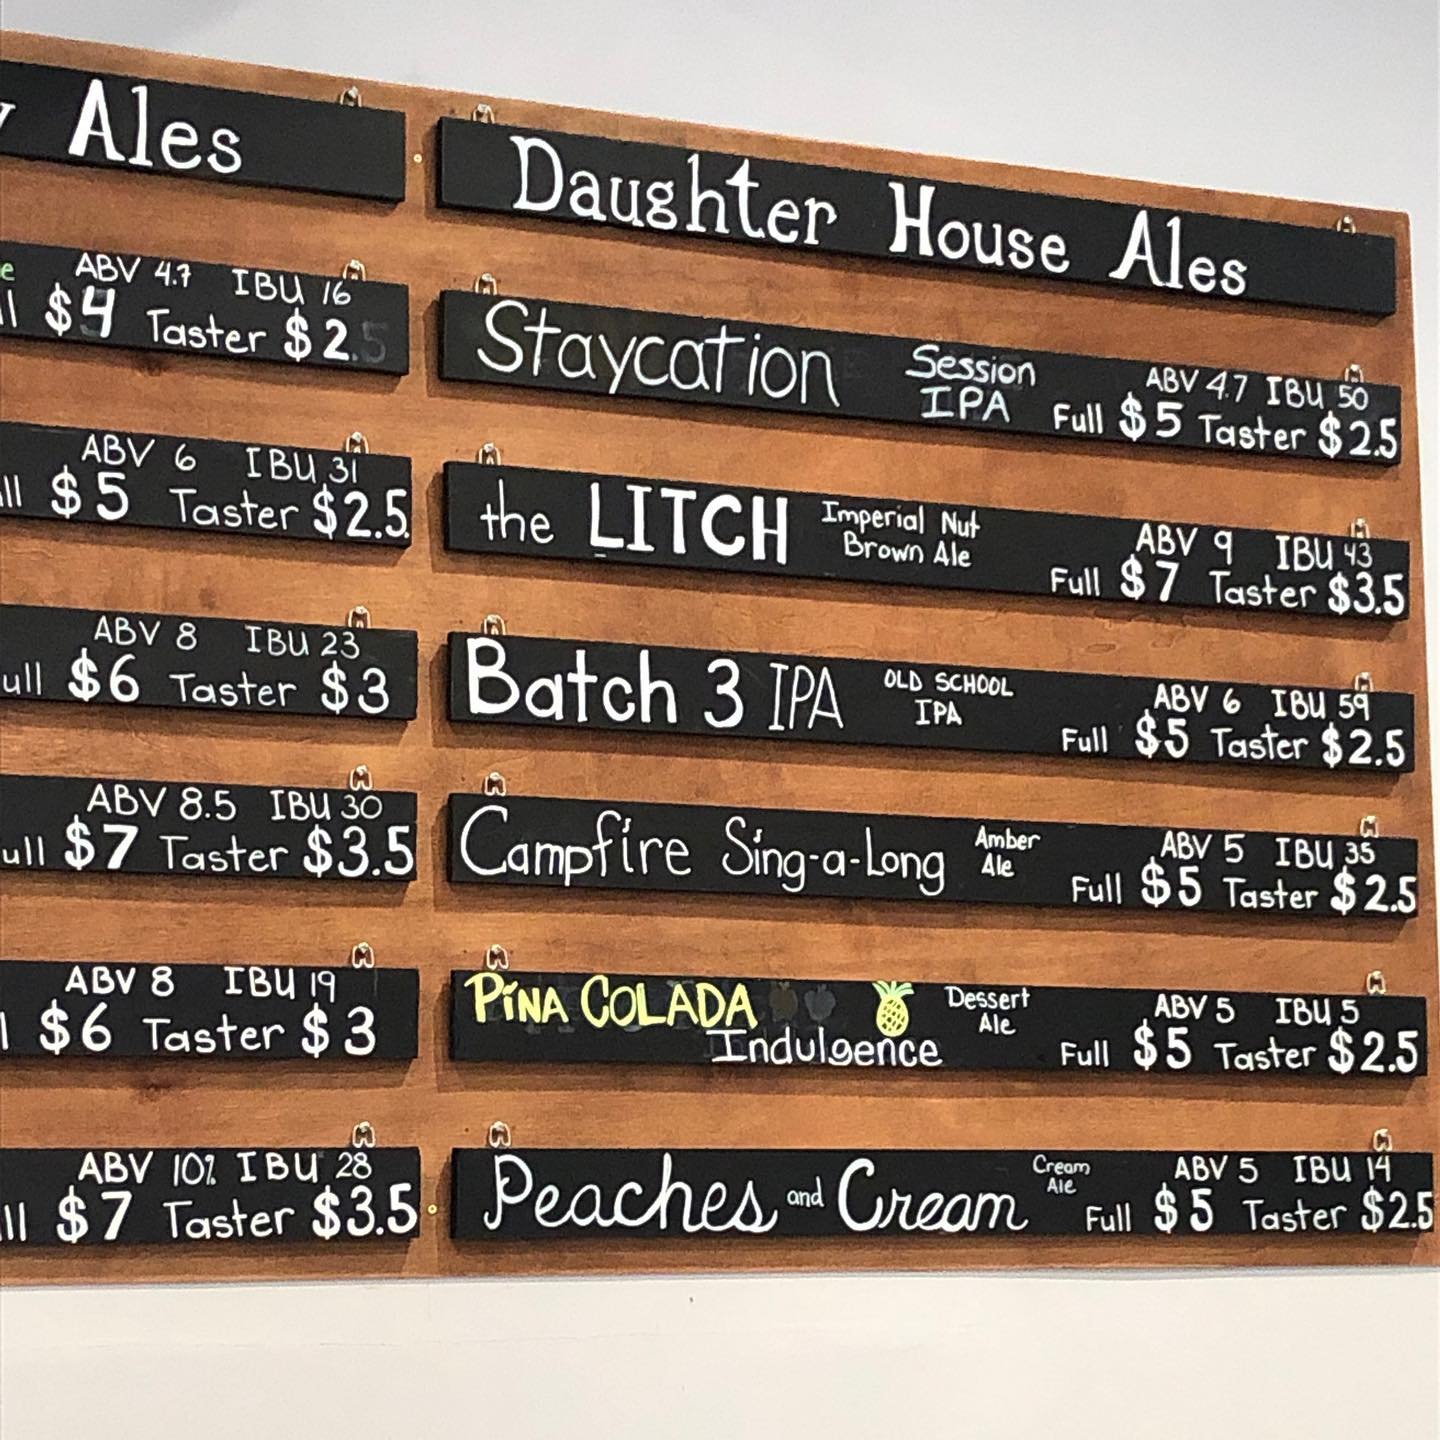 Ales
ABV 4.7 IBU 16
$4 Taster $2
ABV 6 IBU 31
$5 Taster $2.5
ABV 8 IBU 23
$6 Taster $3
ABV 8.5 IBU 30
$7 Taster $3.5
ABV 8 IBU 19
$6 Taster $3
ABV 10% IBU 28
$7 Taster $3.5
Daughter House Ales
Staycation Session IPA ABV 4.7 IBU 50
Full $5 Taster $2.5
the LITCH Imperial Nut Brown Ale ABV 9 IBU 43
Full $7 Taster $3.5
Batch 3 IPA OLD SCHOOL IPA ABV 6 IBU 59
Full $5 Taster $2.5
Campfire Sing-a-Long Amber Ale ABV 5 IBU 35
Full $5 Taster $2.5
PiNA COLADA Dessert Ale ABV 5 IBU 5
Indulgence Full $5 Taster $2.5
Peaches and Cream Cream Ale ABV 5 IBU 14
Full $5 Taster $2.5